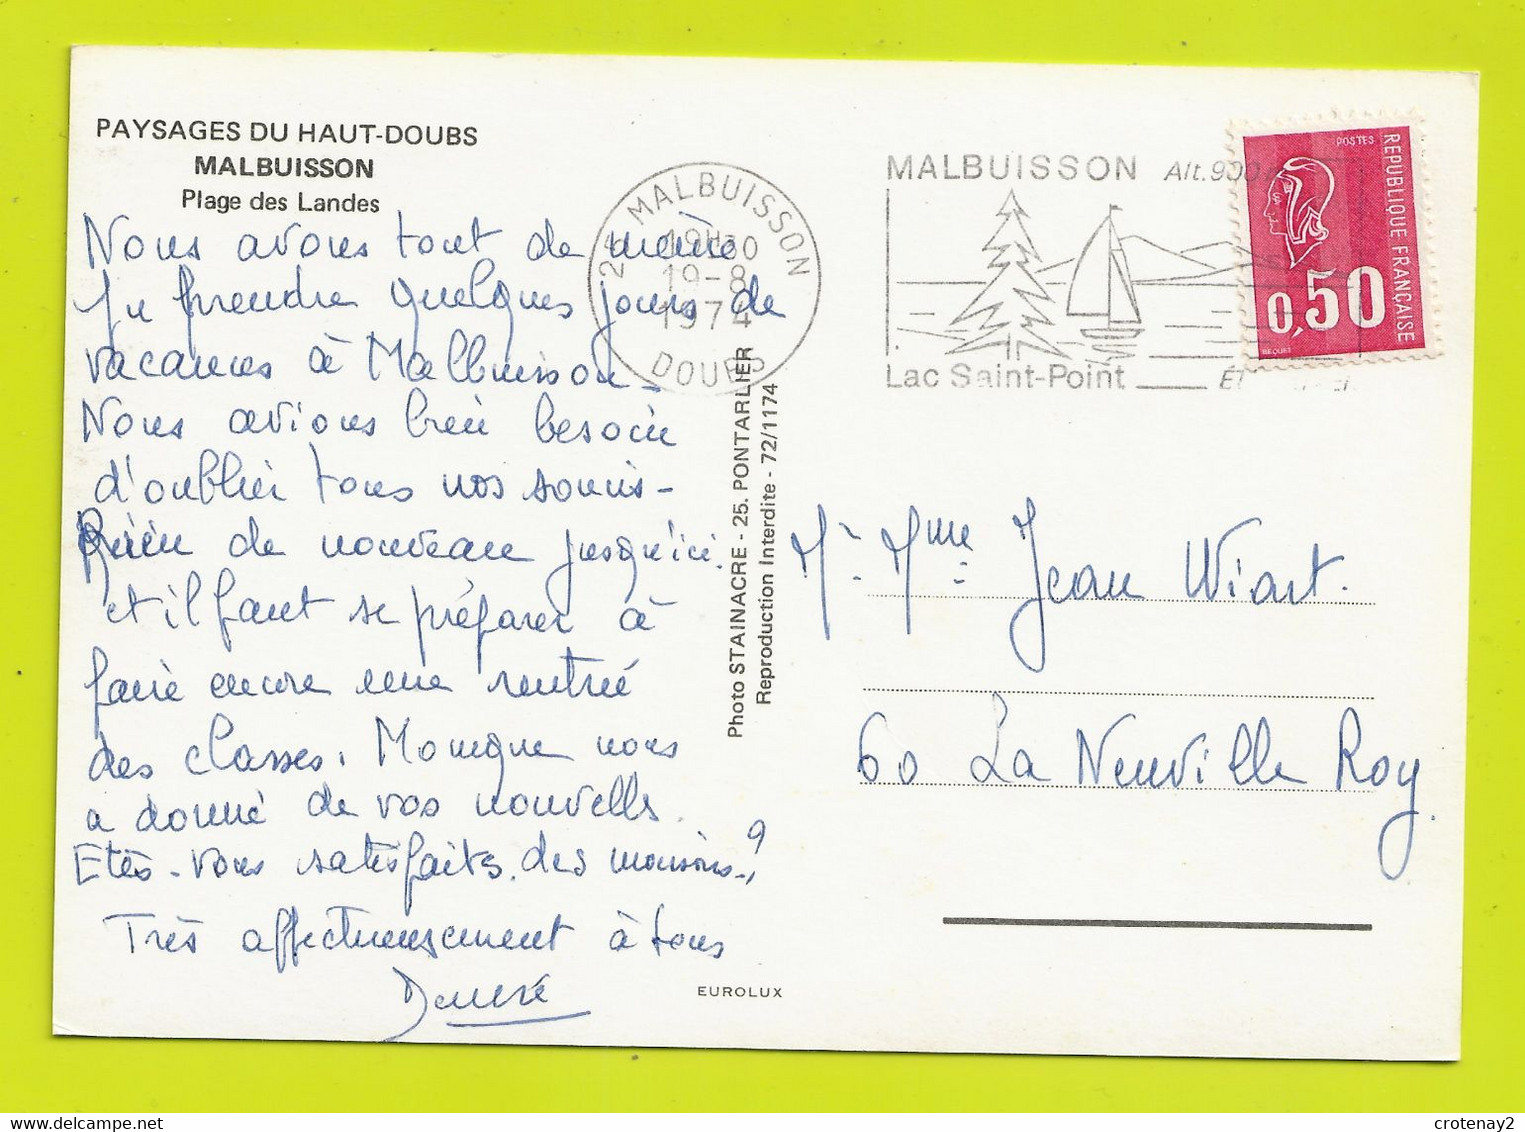 PAYSAGES DU HAUT-DOUBS
MALBUISSON
Plage des Landes
Nous avons tout de même
pu prendre quelques jours de
vacances à Malbuisson -
Nous avions bien besoin
d'oublier tous nos soucis -
Rien de nouveau jusqu'ici
et il faut se préparer à
faire encore une rentrée
des classes. Monique nous
a donné de vos nouvelles.
Etes-vous satisfaits des moissons ?
Très affectueusement à tous
EUROLUX
Photo STAINACRE - 25. PONTARLIER
Reproduction Interdite - 72/1174
25 MALBUISSON
19-8
1974
DOUBS
MALBUISSON Alt. 900
Lac Saint-Point
POSTES
REPUBLIQUE FRANÇAISE
0,50
BEQUET
Mr. Mme Jean Wiart.
60 La Neuville Roy.
crotenay2